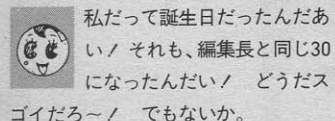 私だって誕生日だったんだあ
い！それも、編集長と同じ30
になったんだい！　どうだス
ゴイだろ〜！　でもないか。